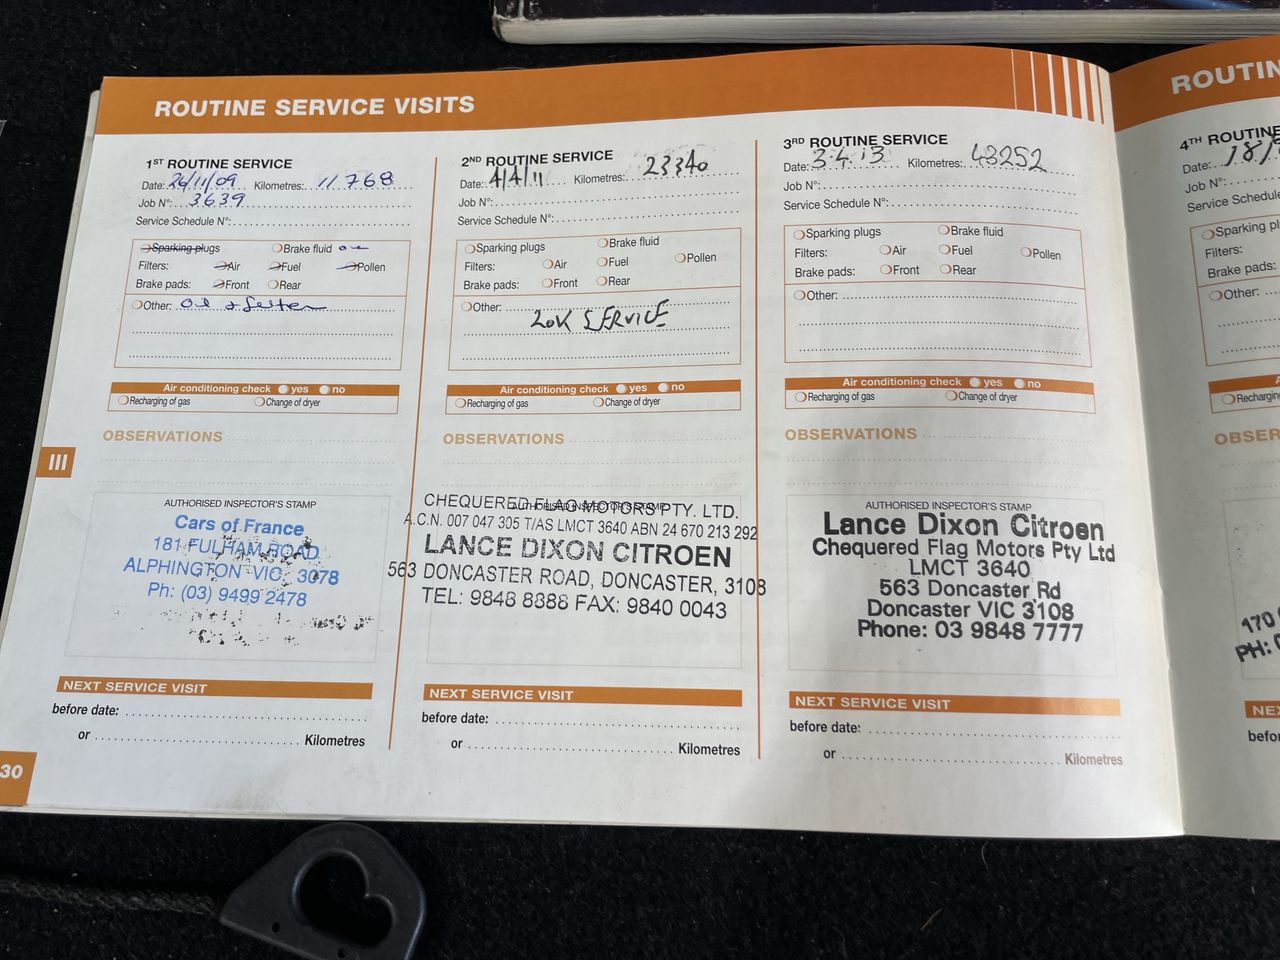 ROUTINE SERVICE VISITS
1ST ROUTINE SERVICE
Date: 26/11/09 Kilometres: 11 768
Job N°: 3639
Service Schedule N°:
Sparking plugs Brake fluid
Filters: Air Fuel Pollen
Brake pads: Front Rear
Other: Oil + filter
Air conditioning check yes no
Recharging of gas Change of dryer
OBSERVATIONS
AUTHORISED INSPECTOR'S STAMP
Cars of France
181 FULHAM ROAD
ALPHINGTON VIC, 3078
Ph: (03) 9499 2478
NEXT SERVICE VISIT
before date:
or Kilometres
2ND ROUTINE SERVICE
Date: 4/4/11 Kilometres: 23340
Job N°:
Service Schedule N°:
Sparking plugs Brake fluid
Filters: Air Fuel Pollen
Brake pads: Front Rear
Other:
20K SERVICE
Air conditioning check yes no
Recharging of gas Change of dryer
OBSERVATIONS
AUTHORISED INSPECTOR'S STAMP
CHEQUERED FLAG MOTORS PTY. LTD.
A.C.N. 007 047 305 T/AS LMCT 3640 ABN 24 670 213 292
LANCE DIXON CITROEN
563 DONCASTER ROAD, DONCASTER, 3108
TEL: 9848 8888 FAX: 9840 0043
NEXT SERVICE VISIT
before date:
or Kilometres
3RD ROUTINE SERVICE
Date: 3.4.13 Kilometres: 43252
Job N°:
Service Schedule N°:
Sparking plugs Brake fluid
Filters: Air Fuel Pollen
Brake pads: Front Rear
Other:
Air conditioning check yes no
Recharging of gas Change of dryer
OBSERVATIONS
AUTHORISED INSPECTOR'S STAMP
Lance Dixon Citroen
Chequered Flag Motors Pty Ltd
LMCT 3640
563 Doncaster Rd
Doncaster VIC 3108
Phone: 03 9848 7777
NEXT SERVICE VISIT
before date:
or Kilometres
III
30
ROUTIN
4TH ROUTINE
Date: 18/
Job N°:
Service Schedule
Sparking pl
Filters:
Brake pads:
Other:
Recharging
OBSER
170
PH:
NEX
befor